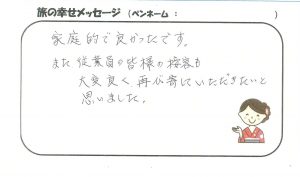 旅の幸せメッセージ (ペンネーム : )
家庭的で良かったです。
また従業員の皆様の接客も
大変良く再び寄せていただきたいと
思いました。